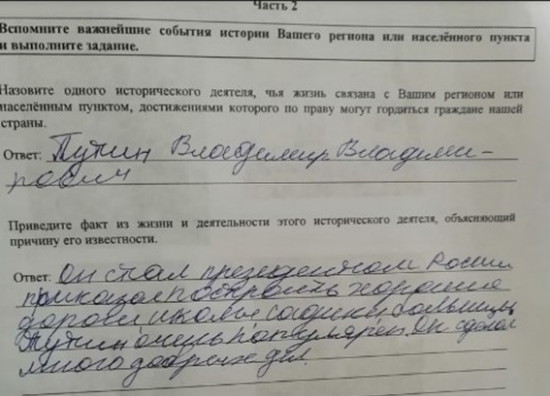 Часть 2
Вспомните важнейшие события истории Вашего региона или населённого пункта
и выполните задание.
Назовите одного исторического деятеля, чья жизнь связана с Вашим регионом или
населённым пунктом, достижениями которого по праву могут гордиться граждане нашей
страны.
Ответ: Путин Владимир Владими-
рович
Приведите факт из жизни и деятельности этого исторического деятеля, объясняющий
причину его известности.
Ответ: Он стал президентом России
приказал построить хорошие
дороги школы садики больницы
Путин очень популярен. Он сделал
много добрых дел.